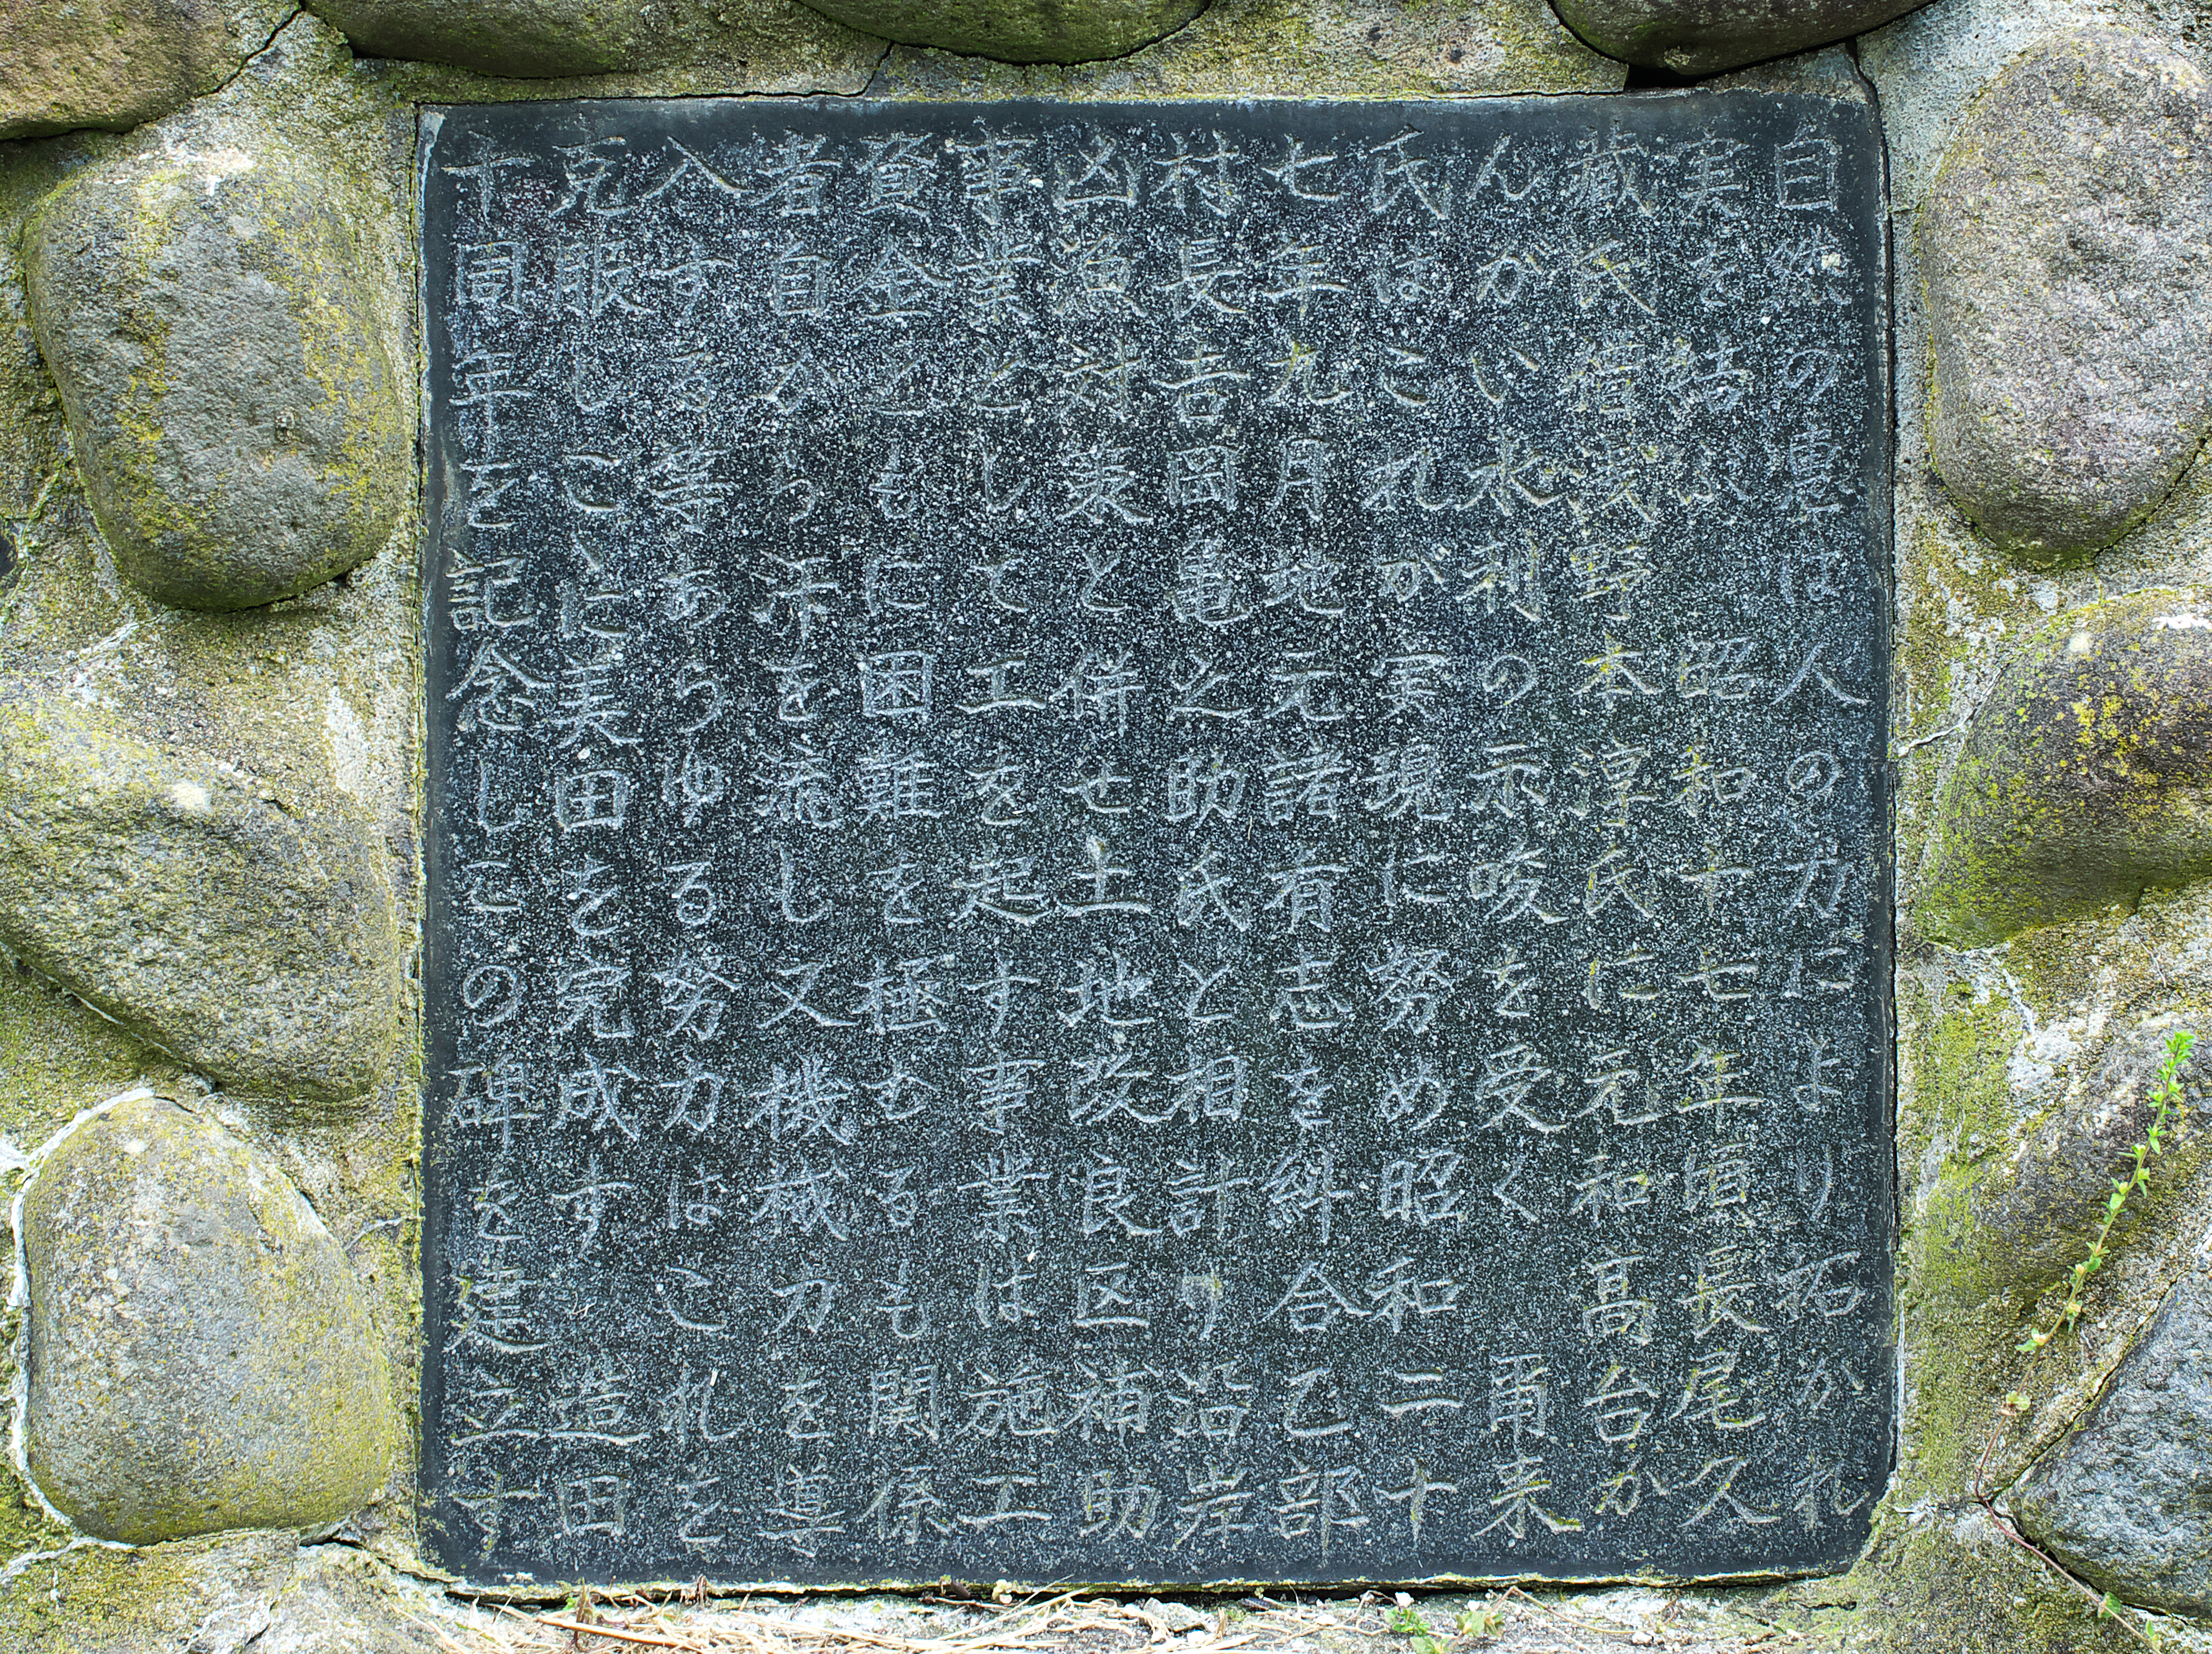 自然の恵は人の力により拓かれ
実を結ふ 昭和十七年頃長尾久
蔵氏野本淳氏に元和高台か
んがい水利の示唆を受く 爾来
氏はこれが実現に努め昭和二十
七年九月地元諸有志を糾合乙部
村長吉岡亀之助氏と相計り沿岸
凶漁対策と併せ土地改良区補助
事業として工を起す事業は施工
資金ともに困難を極むるも関係
者自から汗を流し又機械力を導
入する等あらゆる努力はこれを
克服しこゝに美田を完成す 造田
十周年を記念しこの碑を建立す